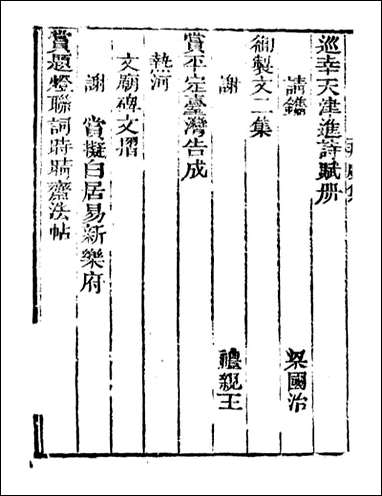 巡幸天津進詩賦册
請鐫　梁國治
御製文二集
謝　禮親王
賞平定臺灣告成
熱河
文廟碑文摺
謝　賞擬白居易新樂府
賞題燈聯詞時晴齋法帖